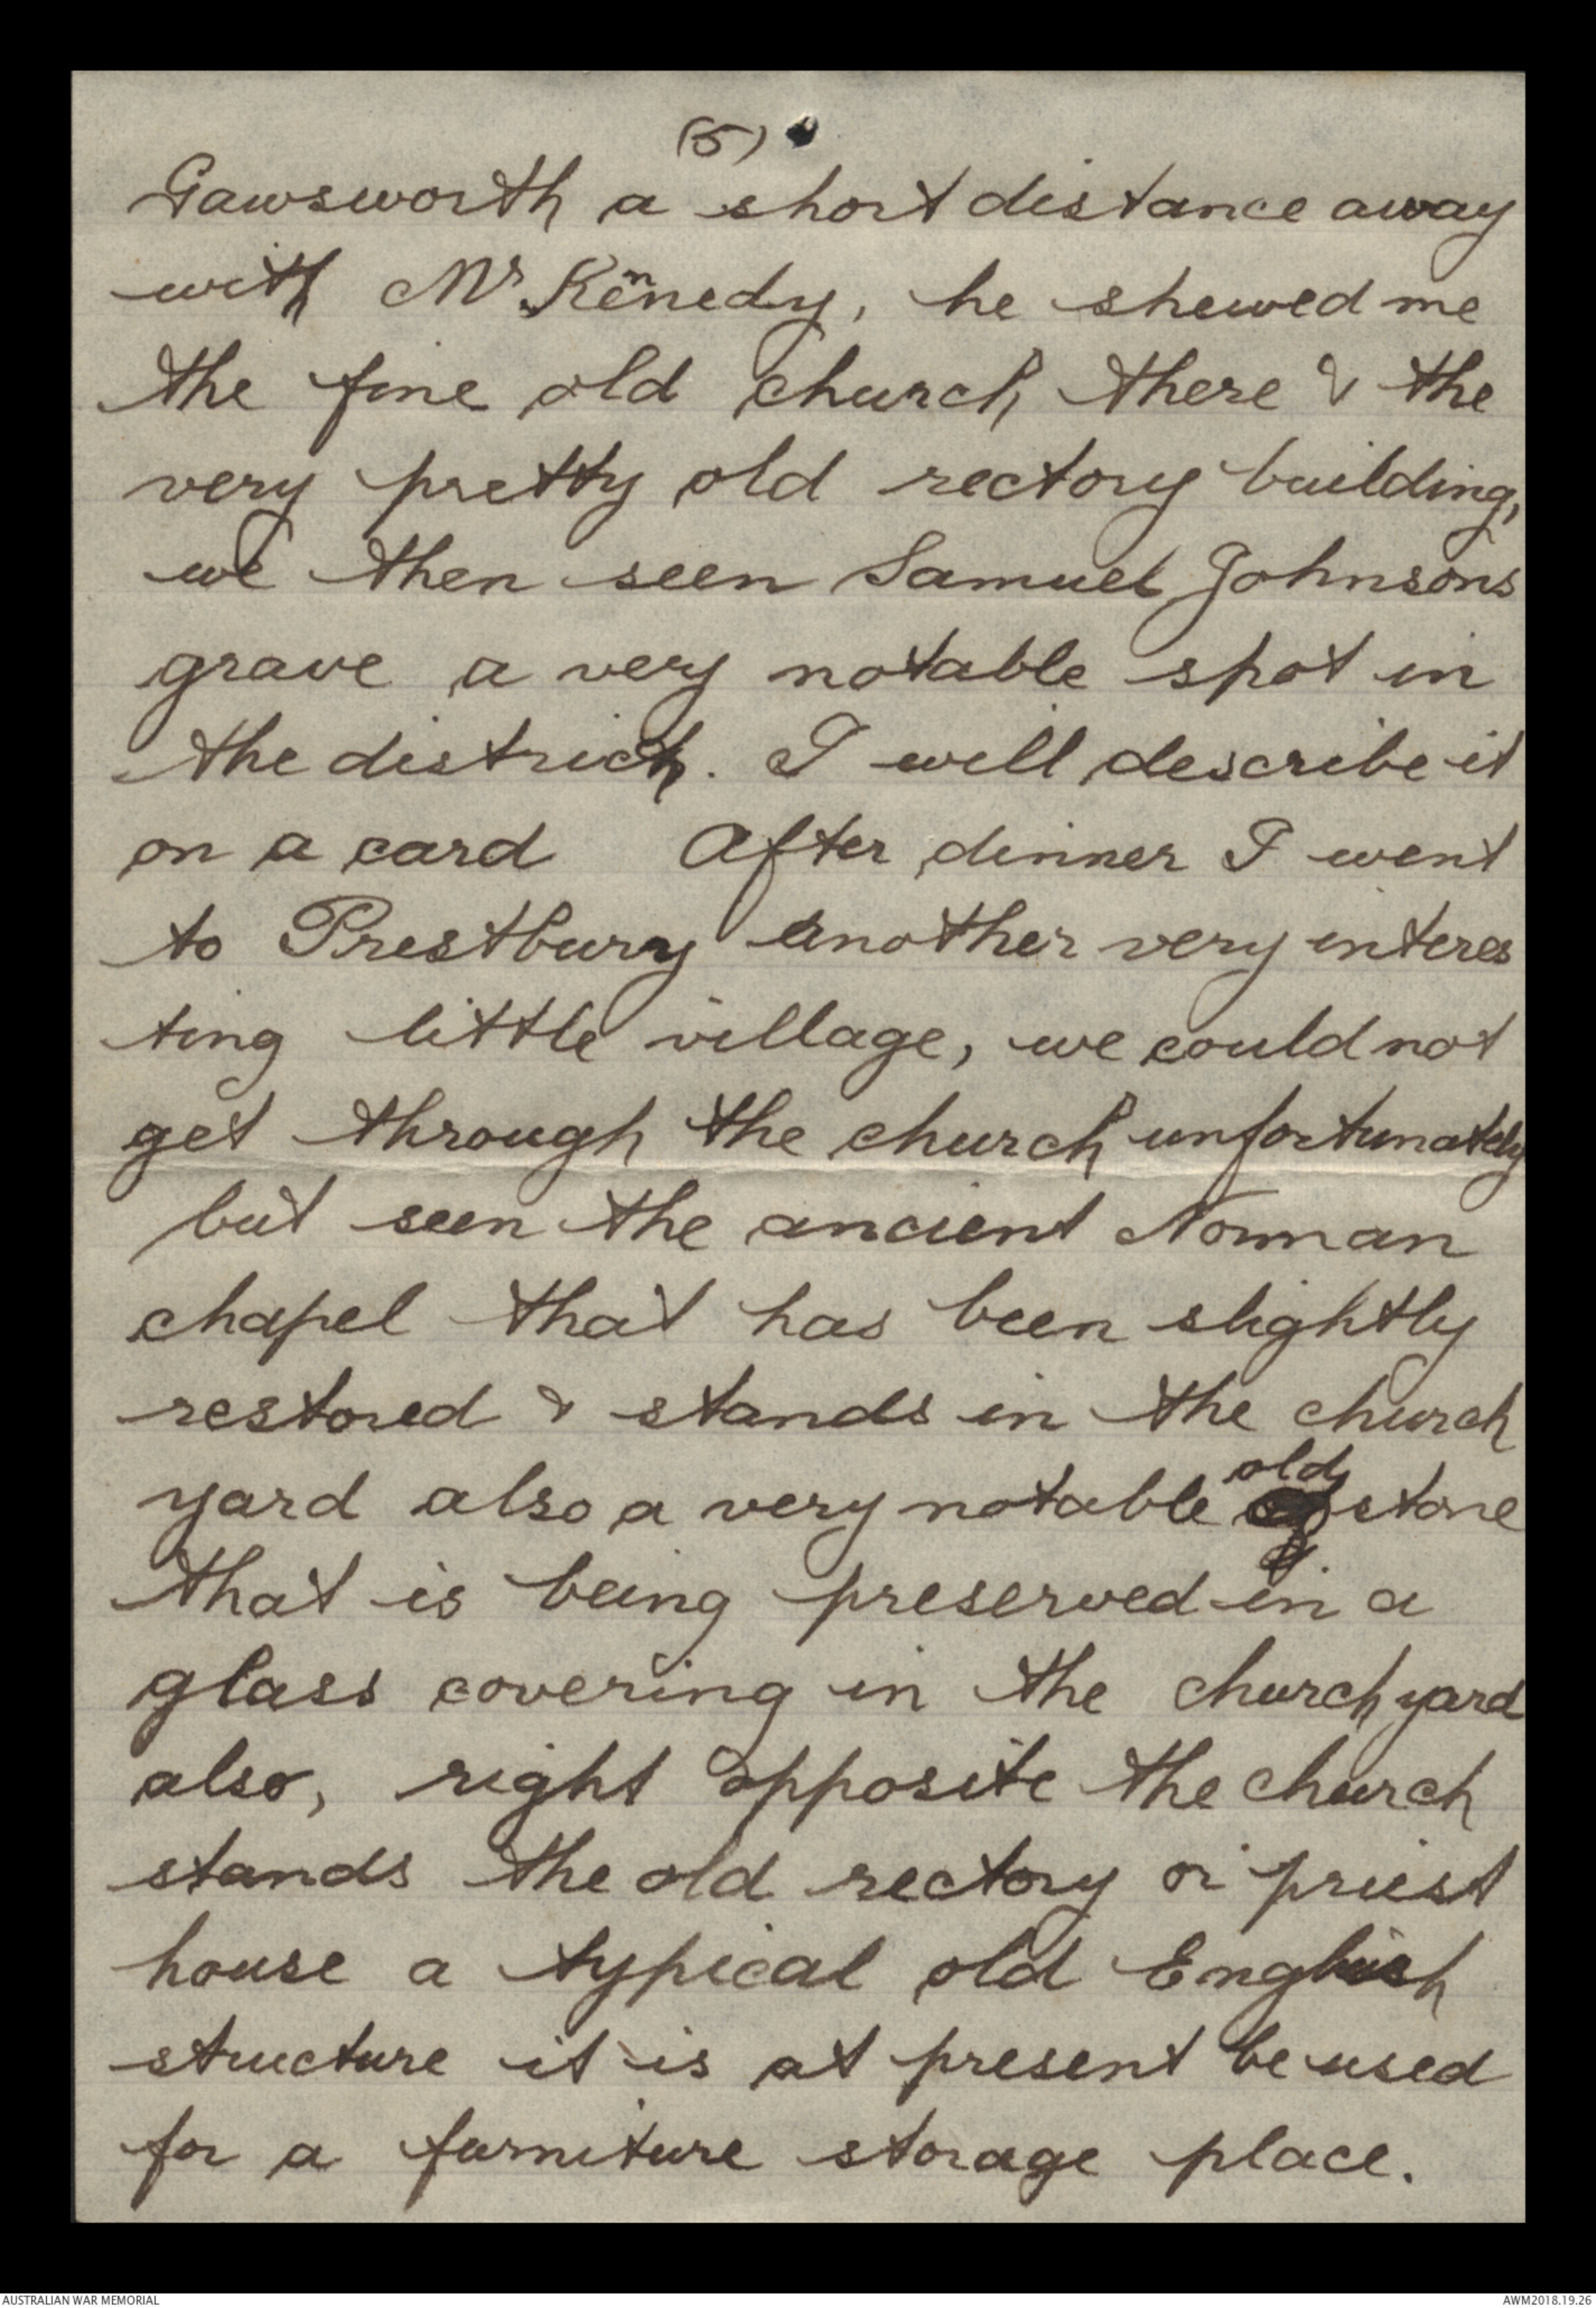 (5)
Gawsworth a short distance away
with Mr Kennedy, he shewed me
the fine old church there & the
very pretty old rectory building,
we then seen Samuel Johnsons
grave a very notable spot in
the district. I will describe it
on a card After dinner I went
to Prestbury another very interes
ting little village, we could not
get through the church unfortunately
but seen the ancient Norman
chapel that has been slightly
restored & stands in the church
yard also a very notable old stone
that is being preserved in a
glass covering in the church yard
also, right opposite the church
stands the old rectory or priest
house a typical old English
structure it is at present be used
for a furniture storage place.
AUSTRALIAN WAR MEMORIAL
AWM2018.19.26